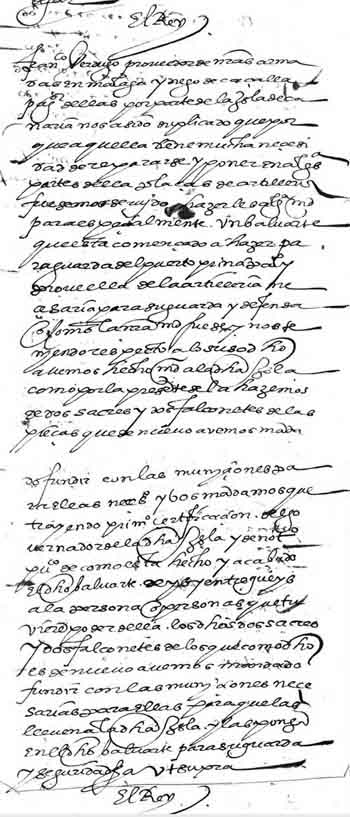 El Rey
franco Verdugo proveedor de nras arma
das en malaga y diego de caçalla
pagor dellas por parte de la ysla de ca
naria nos a sido suplicado que por
que aquella tiene mucha necesi
dad de repararse y poner en algs
partes della cosas de artilleria
fuesemos servido hazerle md
para espeçialmente Un baluarte
que esta començado a hazer pa
ra guarda del puerto prinçipal y
proveella de la artilleria ne
çesaria para su guarda y defensa
como la nra md fuese y nos te
niendo respecto a lo susodho
avemos hecho md a la dha ysla
como por la presente se la hazemos
de dos sacres y dos falconetes de las
pieças que de nuevo avemos manda
do fundir con las muniçiones pa
ra ellas neçs y vos mandamos que
trayendo primo certificaçion del go
vernador de la dha ysla y de not
puco de como esta hecho y acabado
el dho baluarte deys y entregueys
a la persona o personas que tu
vierē poder della los dhos dos sacres
y dos falconetes de los que como dho
es de nuevo avemos mandado
fundir con las muniçiones neçe
sarias para ellas para que las
lleven a la dha ysla y las pongan
en el dho baluarte para su guarda
y seguridad fa Ut supra
El Rey